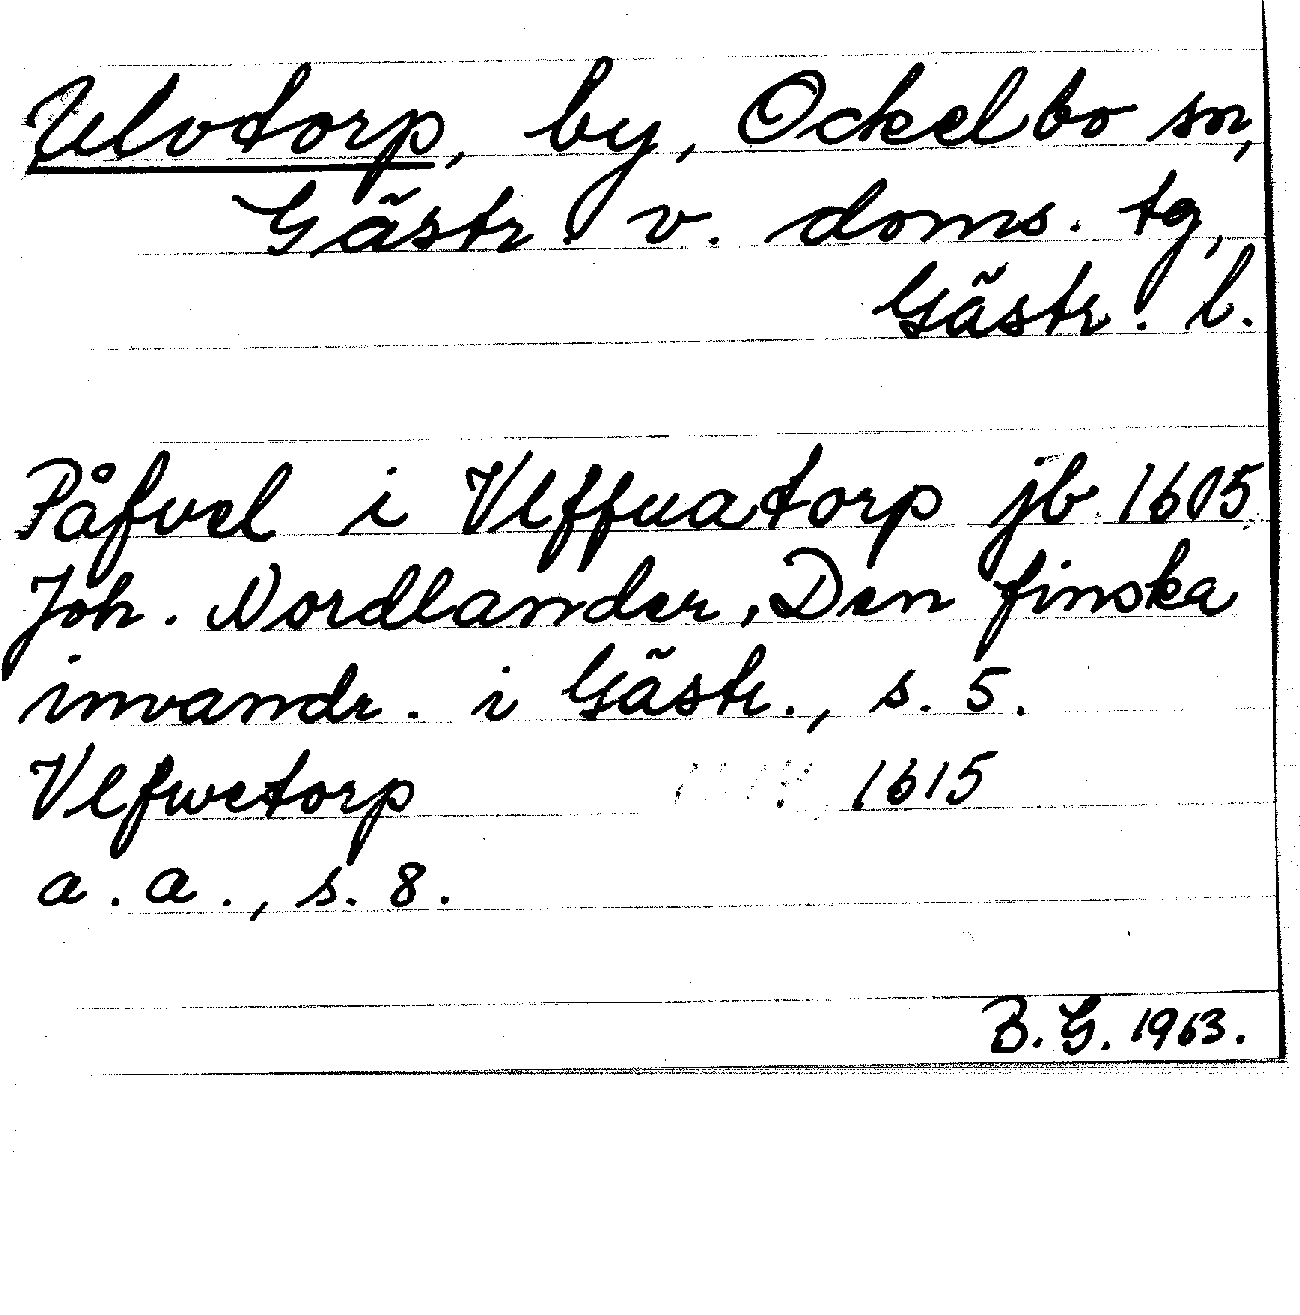 Ulvtorp, by, Ockelbo sn,
Gästr. v. doms. tg,
Gästr. l.
Påfvel i Vlffuatorp jb 1605
Joh. Nordlander, Den finska
invandr. i Gästr., s. 5.
Vlfwetorp 1615
a. a., s. 8.
B. G. 1963.